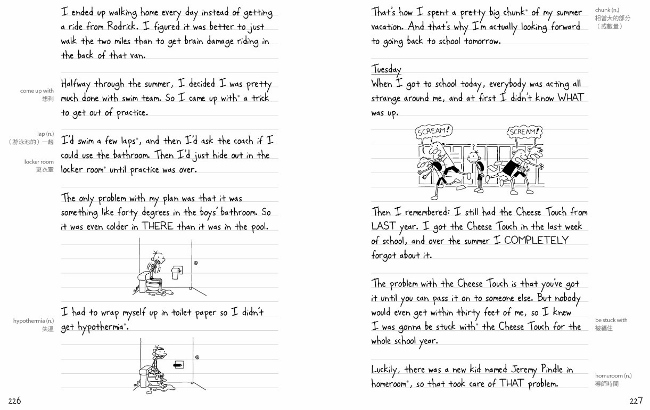 I ended up walking home every day instead of getting
a ride from Rodrick. I figured it was better to just
walk the two miles than to get brain damage riding in
the back of that van.
come up with
想到
Halfway through the summer, I decided I was pretty
much done with swim team. So I came up with* a trick
to get out of practice.
lap (n.)
（游泳池的）一趟
locker room
更衣室
I'd swim a few laps*, and then I'd ask the coach if I
could use the bathroom. Then I'd just hide out in the
locker room* until practice was over.
The only problem with my plan was that it was
something like forty degrees in the boys' bathroom. So
it was even colder in THERE than it was in the pool.
hypothermia (n.)
失溫
I had to wrap myself up in toilet paper so I didn't
get hypothermia*.
226
chunk (n.)
相當大的部分
（或數量）
That's how I spent a pretty big chunk* of my summer
vacation. And that's why I'm actually looking forward
to going back to school tomorrow.
Tuesday
When I got to school today, everybody was acting all
strange around me, and at first I didn't know WHAT
was up.
SCREAM!
SCREAM!
Then I remembered: I still had the Cheese Touch from
LAST year. I got the Cheese Touch in the last week
of school, and over the summer I COMPLETELY
forgot about it.
The problem with the Cheese Touch is that you've got
it until you can pass it on to someone else. But nobody
would even get within thirty feet of me, so I knew
I was gonna be stuck with* the Cheese Touch for the
whole school year.
be stuck with
被纏住
Luckily, there was a new kid named Jeremy Pindle in
homeroom*, so that took care of THAT problem.
homeroom (n.)
導師時間
227